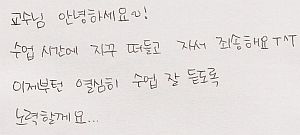 교수님 안녕하세요~!
수업 시간에 자꾸 떠들고 자서 죄송해요 ㅜ^ㅜ
이제부턴 열심히 수업 잘 듣도록
노력할께요...